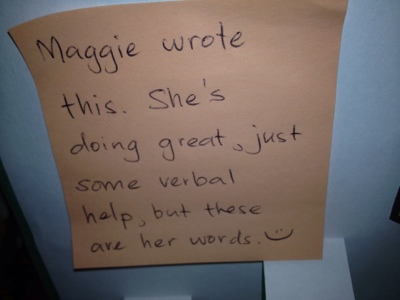 Maggie wrote
this. She's
doing great, just
some verbal
help, but these
are her words. :)